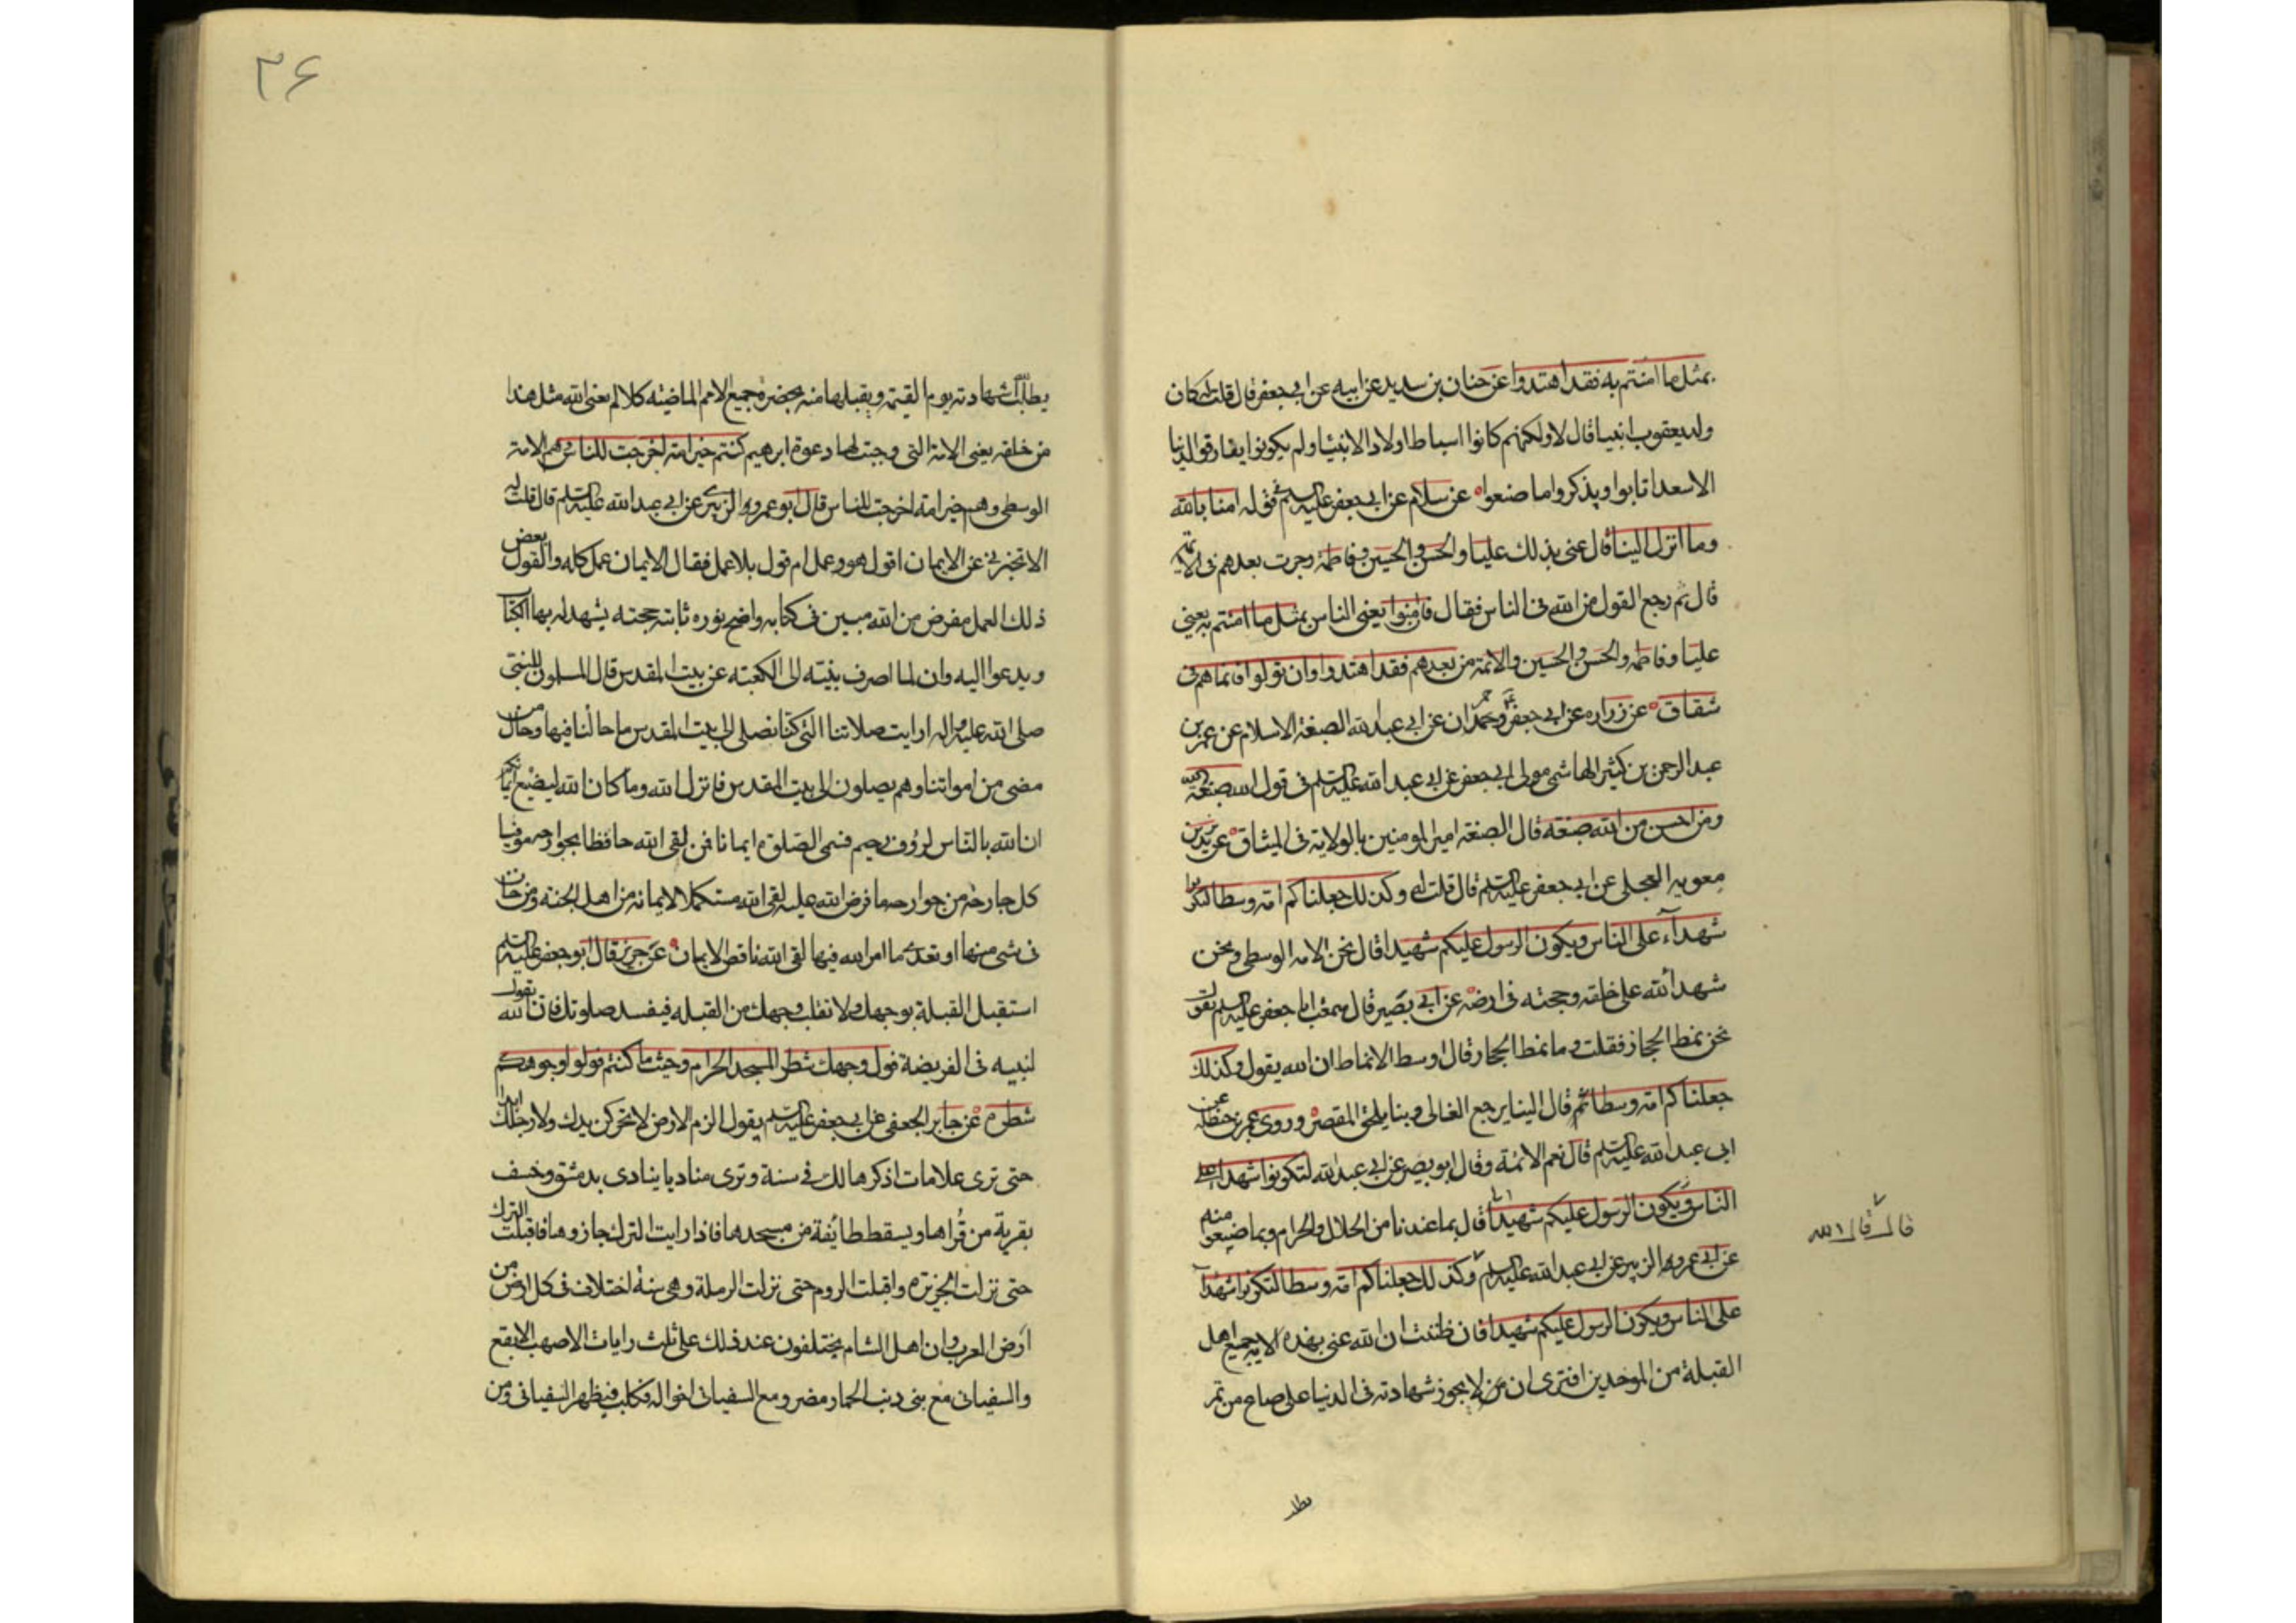 بمثل ما امنتم به فقد اهتدوا عن حنان بن سدير عن ابيه عن ابي جعفر قال قلت له كان
ولد يعقوب انبيا قال لا ولكنهم كانوا اسباطا اولاد الانبيا ولم يكونوا يفارقوا الدنيا
الا سعدا تابوا ويذكروا ما صنعوا عن سلام عن ابي جعفر عليه السلم في قوله امنا بالله
وما انزل الينا قال عنى بذلك عليا والحسن والحسين وفاطمة وجرت بعدهم في الائمة
قال ثم رجع القول من الله في الناس فقال فان امنوا يعني الناس بمثل ما امنتم به يعني
عليا وفاطمة والحسن والحسين والائمة من بعدهم فقد اهتدوا وان تولوا فانما هم في
شقاق عن زراره عن ابي جعفر وحمران عن ابي عبد الله الصبغة الاسلام عن عمر بن
عبد الرحمن بن كثير الهاشمي مولى ابي جعفر عن ابي عبد الله عليه السلم في قول الله صبغة الله
ومن احسن من الله صبغه قال الصبغة امير المومنين بالولاية في الميثاق عن بريد بن
معويه العجلي عن ابي جعفر عليه السلم قال قلت له وكذلك جعلناكم امة وسطا لتكونوا
شهدآء على الناس ويكون الرسول عليكم شهيدا قال نحن الامة الوسطى ونحن
شهدا الله على خلقه وحجته في ارضه عن ابي بصير قال سمعت ابا جعفر عليه السلم يقول
نحن نمط الحجاز فقلت وما نمط الحجاز قال اوسط الانماط ان الله يقول وكذلك
جعلناكم امة وسطا ثم قال الينا يرجع الغالي وبنا يلحق المقصر وروى عمر بن حنظلة عن
ابي عبد الله عليه السلم قال نعم الائمة وقال ابو بصير عن ابي عبد الله لتكونوا شهدا على
الناس ويكون الرسول عليكم شهيدا قال بما عندنا من الحلال والحرام وبما ضيعوا منه
عن ابي عمرو الزبير عن ابي عبد الله عليه السلم وكذلك جعلناكم امة وسطا لتكونوا شهدآ
قال قال الله
على الناس ويكون الرسول عليكم شهيدا فان ظننت ان الله عنى بهذه الاية جميع اهل
القبلة من الموحدين افترى ان من لا يجوز شهادته في الدنيا على صاع من تمر
يطلب
٣۶
يطلب الله شهادته يوم القيمة ويقبلها منه بحضرة جميع الامم الماضية كلا لم يعنى الله مثل هذا
من خلقه يعني الامة التي وجبت لها دعوة ابرهيم كنتم خير امة اخرجت للناس وهم الامة
الوسطى وهم خير امة اخرجت للناس قال ابو عمرو الزبيرى عن ابي عبد الله عليه السلم قال قلت له
الا تخبرني عن الايمان اقول هو وعمل ام قول بلا عمل فقال الايمان عمل كله والقول بعض
ذلك العمل مفرض من الله مبين في كتابه واضح نوره ثابته حجته يشهد له بها الكتاب
ويدعوا اليه وان لما اصرف بنيته الى الكعبته عن بيت المقدس قال المسلمون للنبي
صلى الله عليه واله ارايت صلاتنا التي كنا نصلي الى بيت المقدس ما حالنا فيها وحال من
مضى من امواتنا وهم يصلون الى بيت المقدس فانزل الله وما كان الله ليضيع ايمانكم
ان الله بالناس لرؤف رحيم فسمى الصلوة ايمانا فمن لقى الله حافظا بجوارحه موفيا
كل جارحه من جوارحه ما فرض الله عليه لقى الله مستكملا لايمانه من اهل الجنة ومن خان
في شى منها او تعدى ما امر الله فيها لقى الله ناقص الايمان عن حريز قال ابو جعفر عليه السلم
استقبل القبلة بوجهك ولا تقلب وجهك من القبله فيفسد صلوتك فان الله يقول
لنبيه في الفريضة فول وجهك شطر المسجد الحرام وحيث ما كنتم فولوا وجوهكم
شطره عن جابر الجعفي عن ابي جعفر عليه السلم يقول الزم الارض لا تحركن يدك ولا رجلك ابدا
حتى ترى علامات اذكرها لك في سنة وترى مناديا ينادى بدمشق وخسف
بقرية من قراها ويسقط طائفة من مسجدها فاذا رايت الترك جازوها فاقبلت الترك
حتى نزلت الجزيرة واقبلت الروم حتى نزلت الرملة وهي سنة اختلاف في كل ارض من
ارض العرب وان اهل الشام يختلفون عند ذلك على ثلث رايات الاصهب الابقع
والسفياني مع بني ذنب الحمار مضر ومع السفياني اخواله من كلب فيظهر السفياني ومن